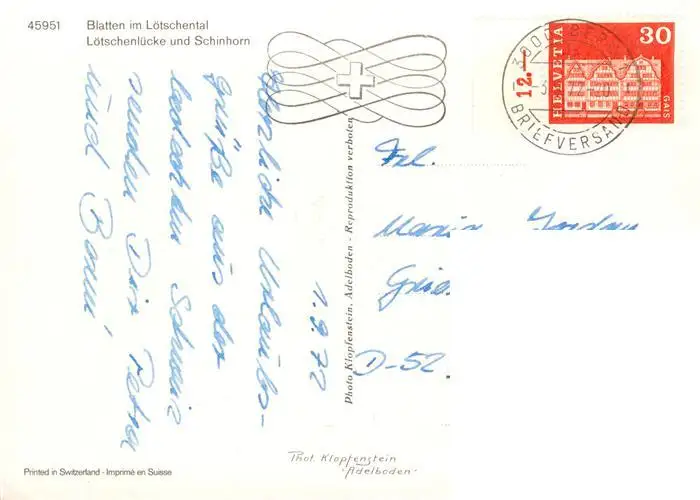 45951 Blatten im Lötschental
Lötschenlücke und Schinhorn
1.9.72
Herzliche Urlaubs-
grüße aus der
Schweiz
senden Dir Petra
und
Photo Klopfenstein, Adelboden - Reproduktion verboten
12.–
HELVETIA
30
GAIS
3000 BERN
BRIEFVERSAND
Frl.
D-52
Phot. Klopfenstein
Adelboden
Printed in Switzerland - Imprimé en Suisse